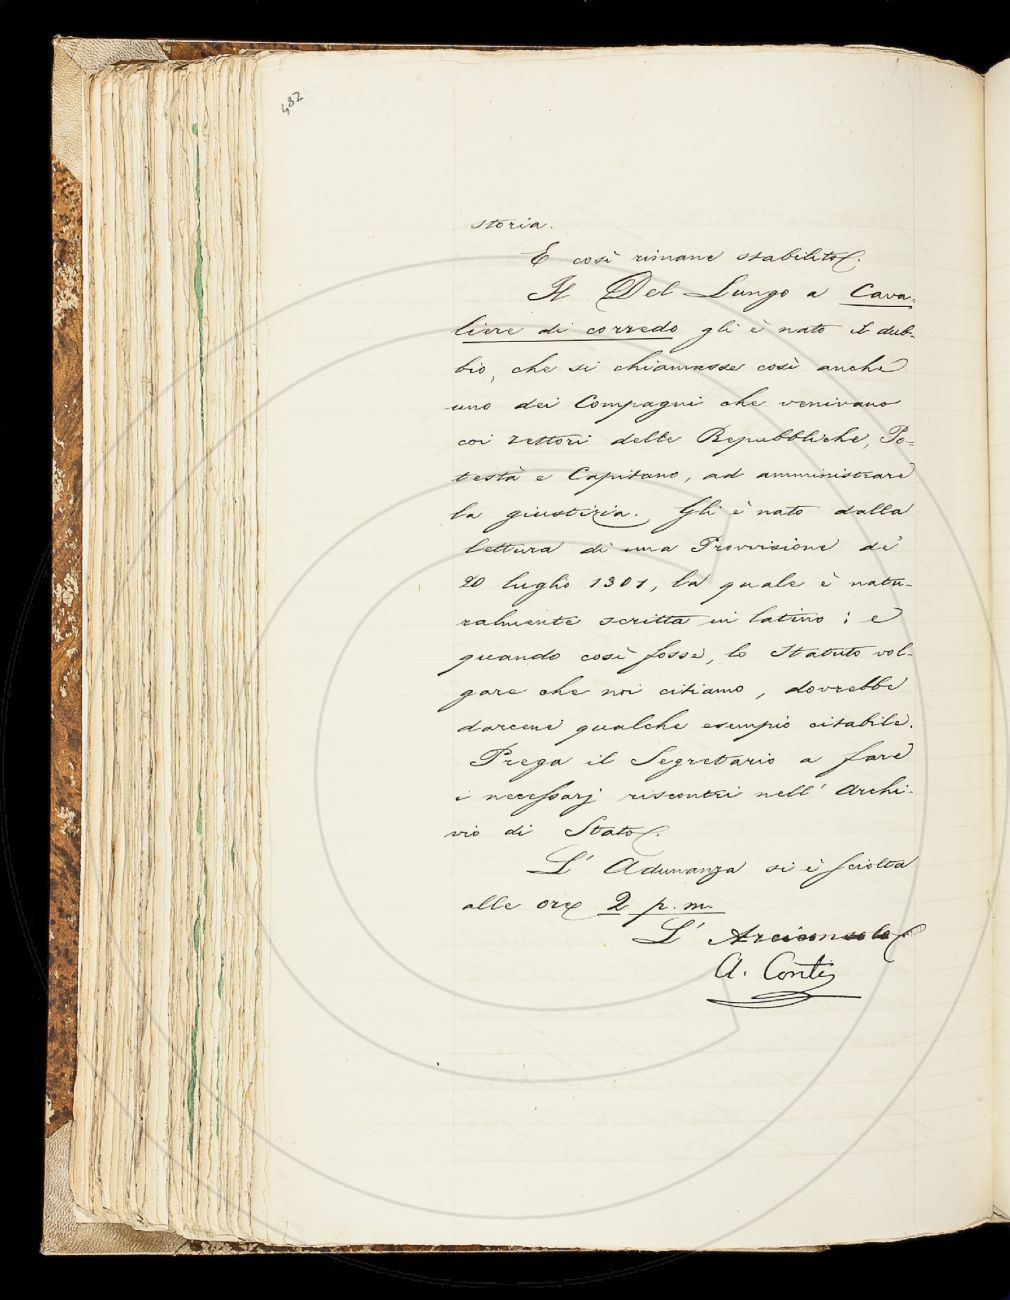 482
storia.
E così rimane stabilito.
Il Del Lungo a Cava=
liere di corredo gli è nato il dub-
bio, che si chiamasse così anche
uno dei Compagni che venivano
coi rettori delle Repubbliche, Po=
testà e Capitano, ad amministrare
la giustizia. Gli è nato dalla
lettura di una Provvisione de'
20 luglio 1301, la quale è natu-
ralmente scritta in latino; e
quando così fosse, lo Statuto vol-
gare che noi citiamo, dovrebbe
darcene qualche esempio citabile.
Prega il Segretario a fare
i necessarj riscontri nell' Archi-
vio di Stato.
L' Adunanza si è sciolta
alle ore 2 p. m.
L' Arciconsolo
A. Conti